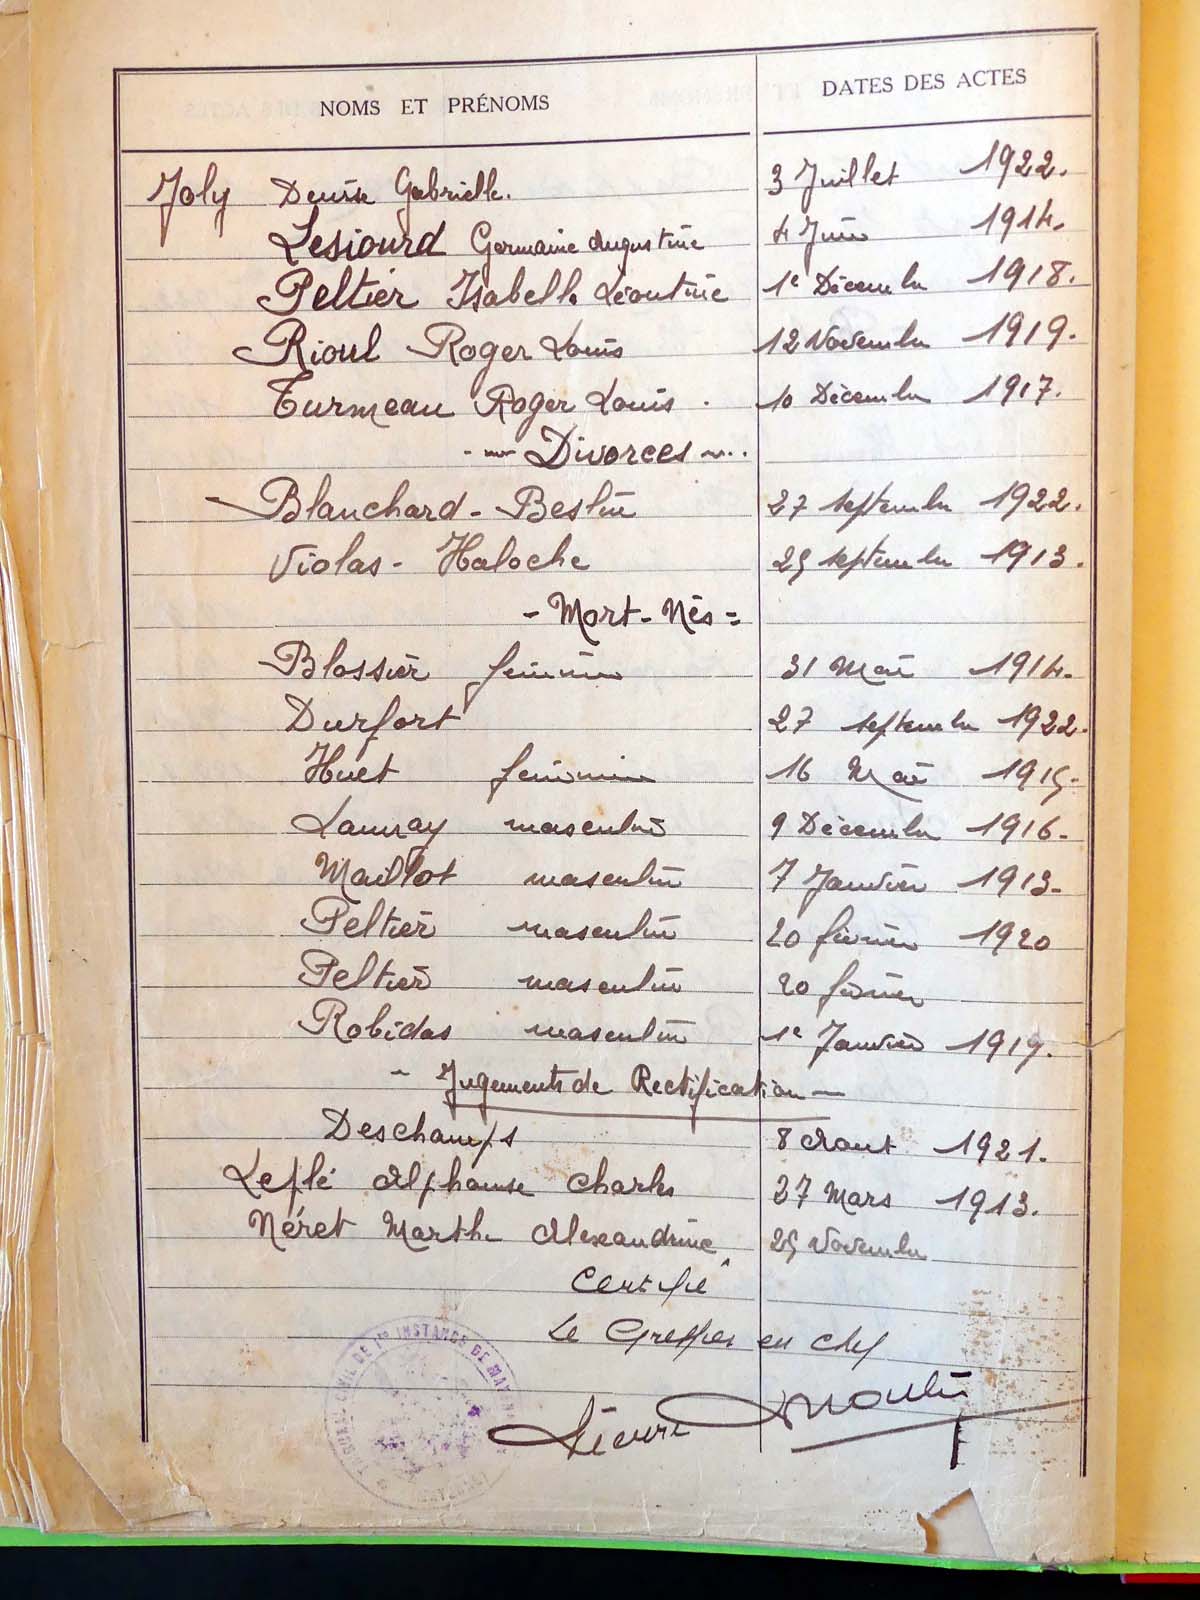 NOMS ET PRÉNOMS DATES DES ACTES
Joly Denise Gabrielle. 3 Juillet 1922.
Lesiourd Germaine Augustine 4 Juin 1914.
Peltier Isabelle Léontine 1e Décembre 1918.
Rioul Roger Louis 12 Novembre 1919.
Turmeau Roger Louis. 10 Décembre 1917.
Divorces
Blanchard - Beslin 27 septembre 1922.
Violas - Haloche 25 septembre 1913.
- Mort-Nés =
Blossier féminin 31 Mai 1914.
Durfort 27 septembre 1922.
Huet féminin 16 Mai 1915.
Launay masculin 9 Décembre 1916.
Maillot masculin 7 Janvier 1913.
Peltier masculin 20 février 1920
Peltier masculin 20 février
Robidas masculin 1e Janvier 1919.
- Jugements de Rectification -
Deschamps 8 Aout 1921.
Leplé Alphonse Charles 27 Mars 1913.
Néret Marthe Alexandrine 25 Novembre
Certifié
Le Greffier en chef
TRIBUNAL CIVIL DE 1re INSTANCE DE